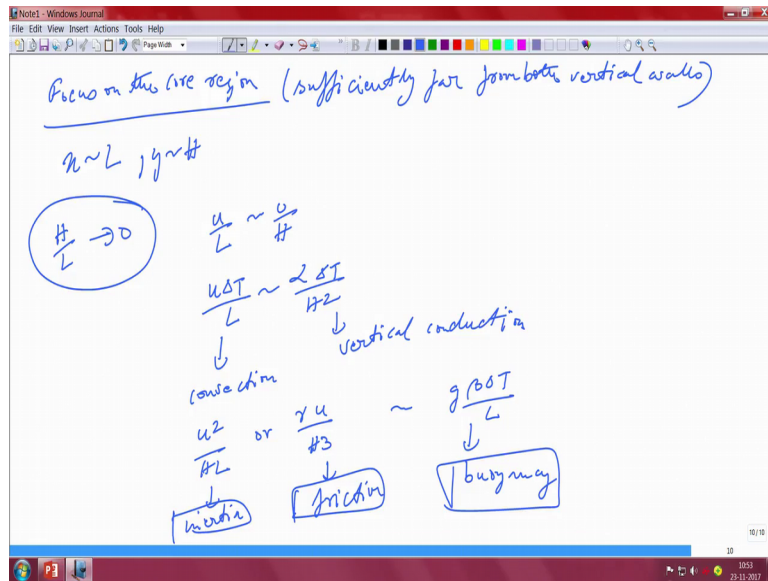 Note1 - Windows Journal
File Edit View Insert Actions Tools Help
Page Width
B I
Focus on the core region (sufficiently far from both vertical walls)
x ~ L , y ~ H
H/L → 0
u/L ~ v/H
uΔT/L ~ αΔT/H2
convection
vertical conduction
u2/HL or γu/H3 ~ gβΔT/L
inertia
friction
buoyancy
10/10
10
10:53
23-11-2017